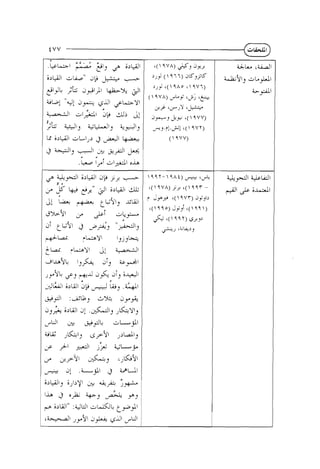 الملحقات
٤٧٧
الصفة، معالجة
المعلومات والأنظمة
المفتوحة
بريون وكيلي (١٩٧٨)،
كانزوكان (١٩٦٦) لورد
(١٩٧٦، ١٩٨٥)، لورد
بينيغ، رَش، توماس (١٩٧٨)
ميتشيل، لارسن، غرين
(١٩٧٧)، نيويل وسيمون
(١٩٧٢)، إتش.إم.ويس
(١٩٧٧)
القيادة هي واقع مُصمَّم اجتماعياً.
حسب ميتشيل فإن "صفات القيادة
التي يلاحظها المراقبون تتأثر بالواقع
الاجتماعي الذي ينتمون إليه" إضافة
إلى ذلك فإن المتغيّرات الشخصية
والبنيوية والعملياتية والبيئية تتأثّر
ببعضها البعض في دراسات القيادة مما
يجعل التفريق بين السبب والنتيجة في
هذه المتغيرات أمراً صعباً.
التفاعلية التحويلية
المعتمدة على القيم
باس، بينيس (١٩٨٤-١٩٩٢
– ١٩٩٣)، برنز (١٩٧٨)،
داونتون (١٩٧٣)، فيرهوم م
(١٩٩١)، أوتول (١٩٩٥)،
دوبري (١٩٩٢)، تيكي
وديفانا، ريتشي
حسب برنز فإن القيادة التحويلية هي
تلك القيادة التي "يرفع فيها كُلٌ من
القائد والأتباع بعضهم بعضاً إلى
مستويات أعلى من الأخلاق
والتحفيز" ويُفترض في الأتباع أن
يتجاوزوا الاهتمام بمصالحهم
الشخصية إلى الاهتمام بمصالح
المجموعة وأن يفكروا بالأهداف
البعيدة وأن يكون لديهم وعي بالأمور
المهمّة. وفقاً لبينيس فإنّ القادة الفعّالين
يقومون بثلاث وظائف: التوفيق
والابتكار والتمكين. إن القادة يغيّرون
المؤسسات بالتوفيق بين الناس
والمصادر الأخرى وابتكار ثقافة
مؤسساتية تعزّز التعبير الحر عن
الأفكار، وبتمكين الآخرين من
المساهمة في المؤسسة. إن بينيس
مشهورٌ بتفريقه بين الإدارة والقيادة
وهو يلخّص وجهة نظره في هذا
الموضوع بالكلمات التالية: "القادة هم
الناس الذي يفعلون الأمور الصحيحة،